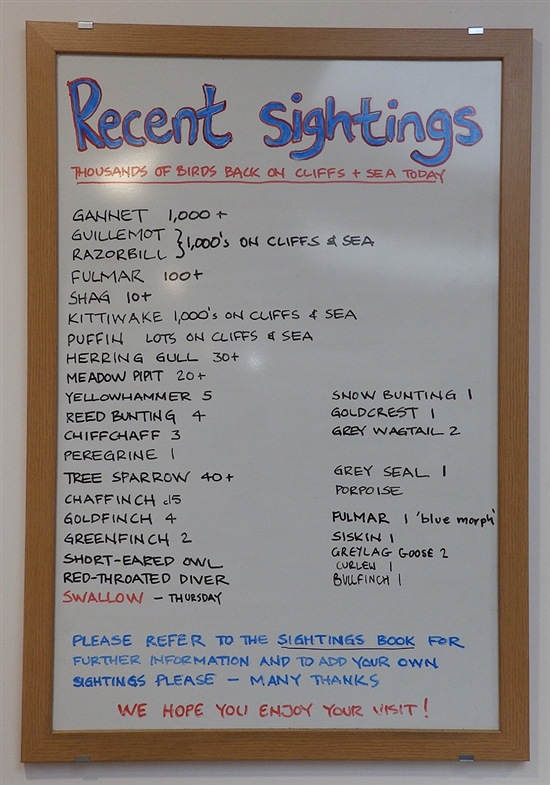 Recent Sightings
THOUSANDS OF BIRDS BACK ON CLIFFS + SEA TODAY
GANNET 1,000 +
GUILLEMOT
RAZORBILL } 1,000's ON CLIFFS & SEA
FULMAR 100+
SHAG 10+
KITTIWAKE 1,000's ON CLIFFS & SEA
PUFFIN LOTS ON CLIFFS & SEA
HERRING GULL 30+
MEADOW PIPIT 20+
YELLOWHAMMER 5
REED BUNTING 4
CHIFFCHAFF 3
PEREGRINE 1
TREE SPARROW 40+
CHAFFINCH c15
GOLDFINCH 4
GREENFINCH 2
SHORT-EARED OWL
RED-THROATED DIVER
SWALLOW - THURSDAY
SNOW BUNTING 1
GOLDCREST 1
GREY WAGTAIL 2
GREY SEAL 1
PORPOISE
FULMAR 1 'blue morph'
SISKIN 1
GREYLAG GOOSE 2
CURLEW 1
BULLFINCH 1
PLEASE REFER TO THE SIGHTINGS BOOK FOR
FURTHER INFORMATION AND TO ADD YOUR OWN
SIGHTINGS PLEASE - MANY THANKS
WE HOPE YOU ENJOY YOUR VISIT!